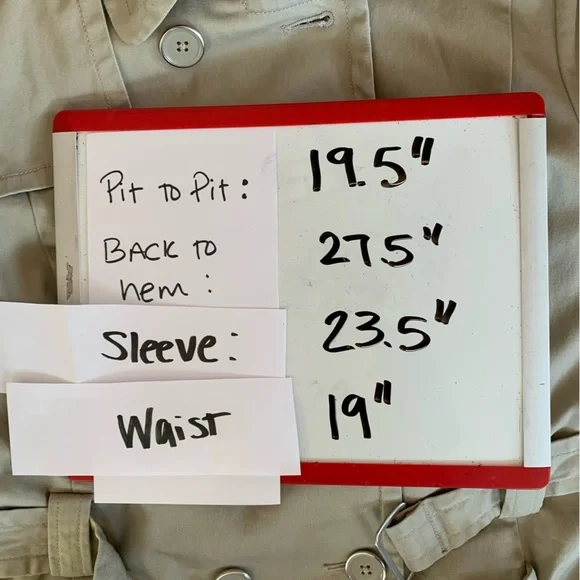 Pit to Pit: 19.5"
BACK TO
hem: 27.5"
Sleeve: 23.5"
Waist 19"